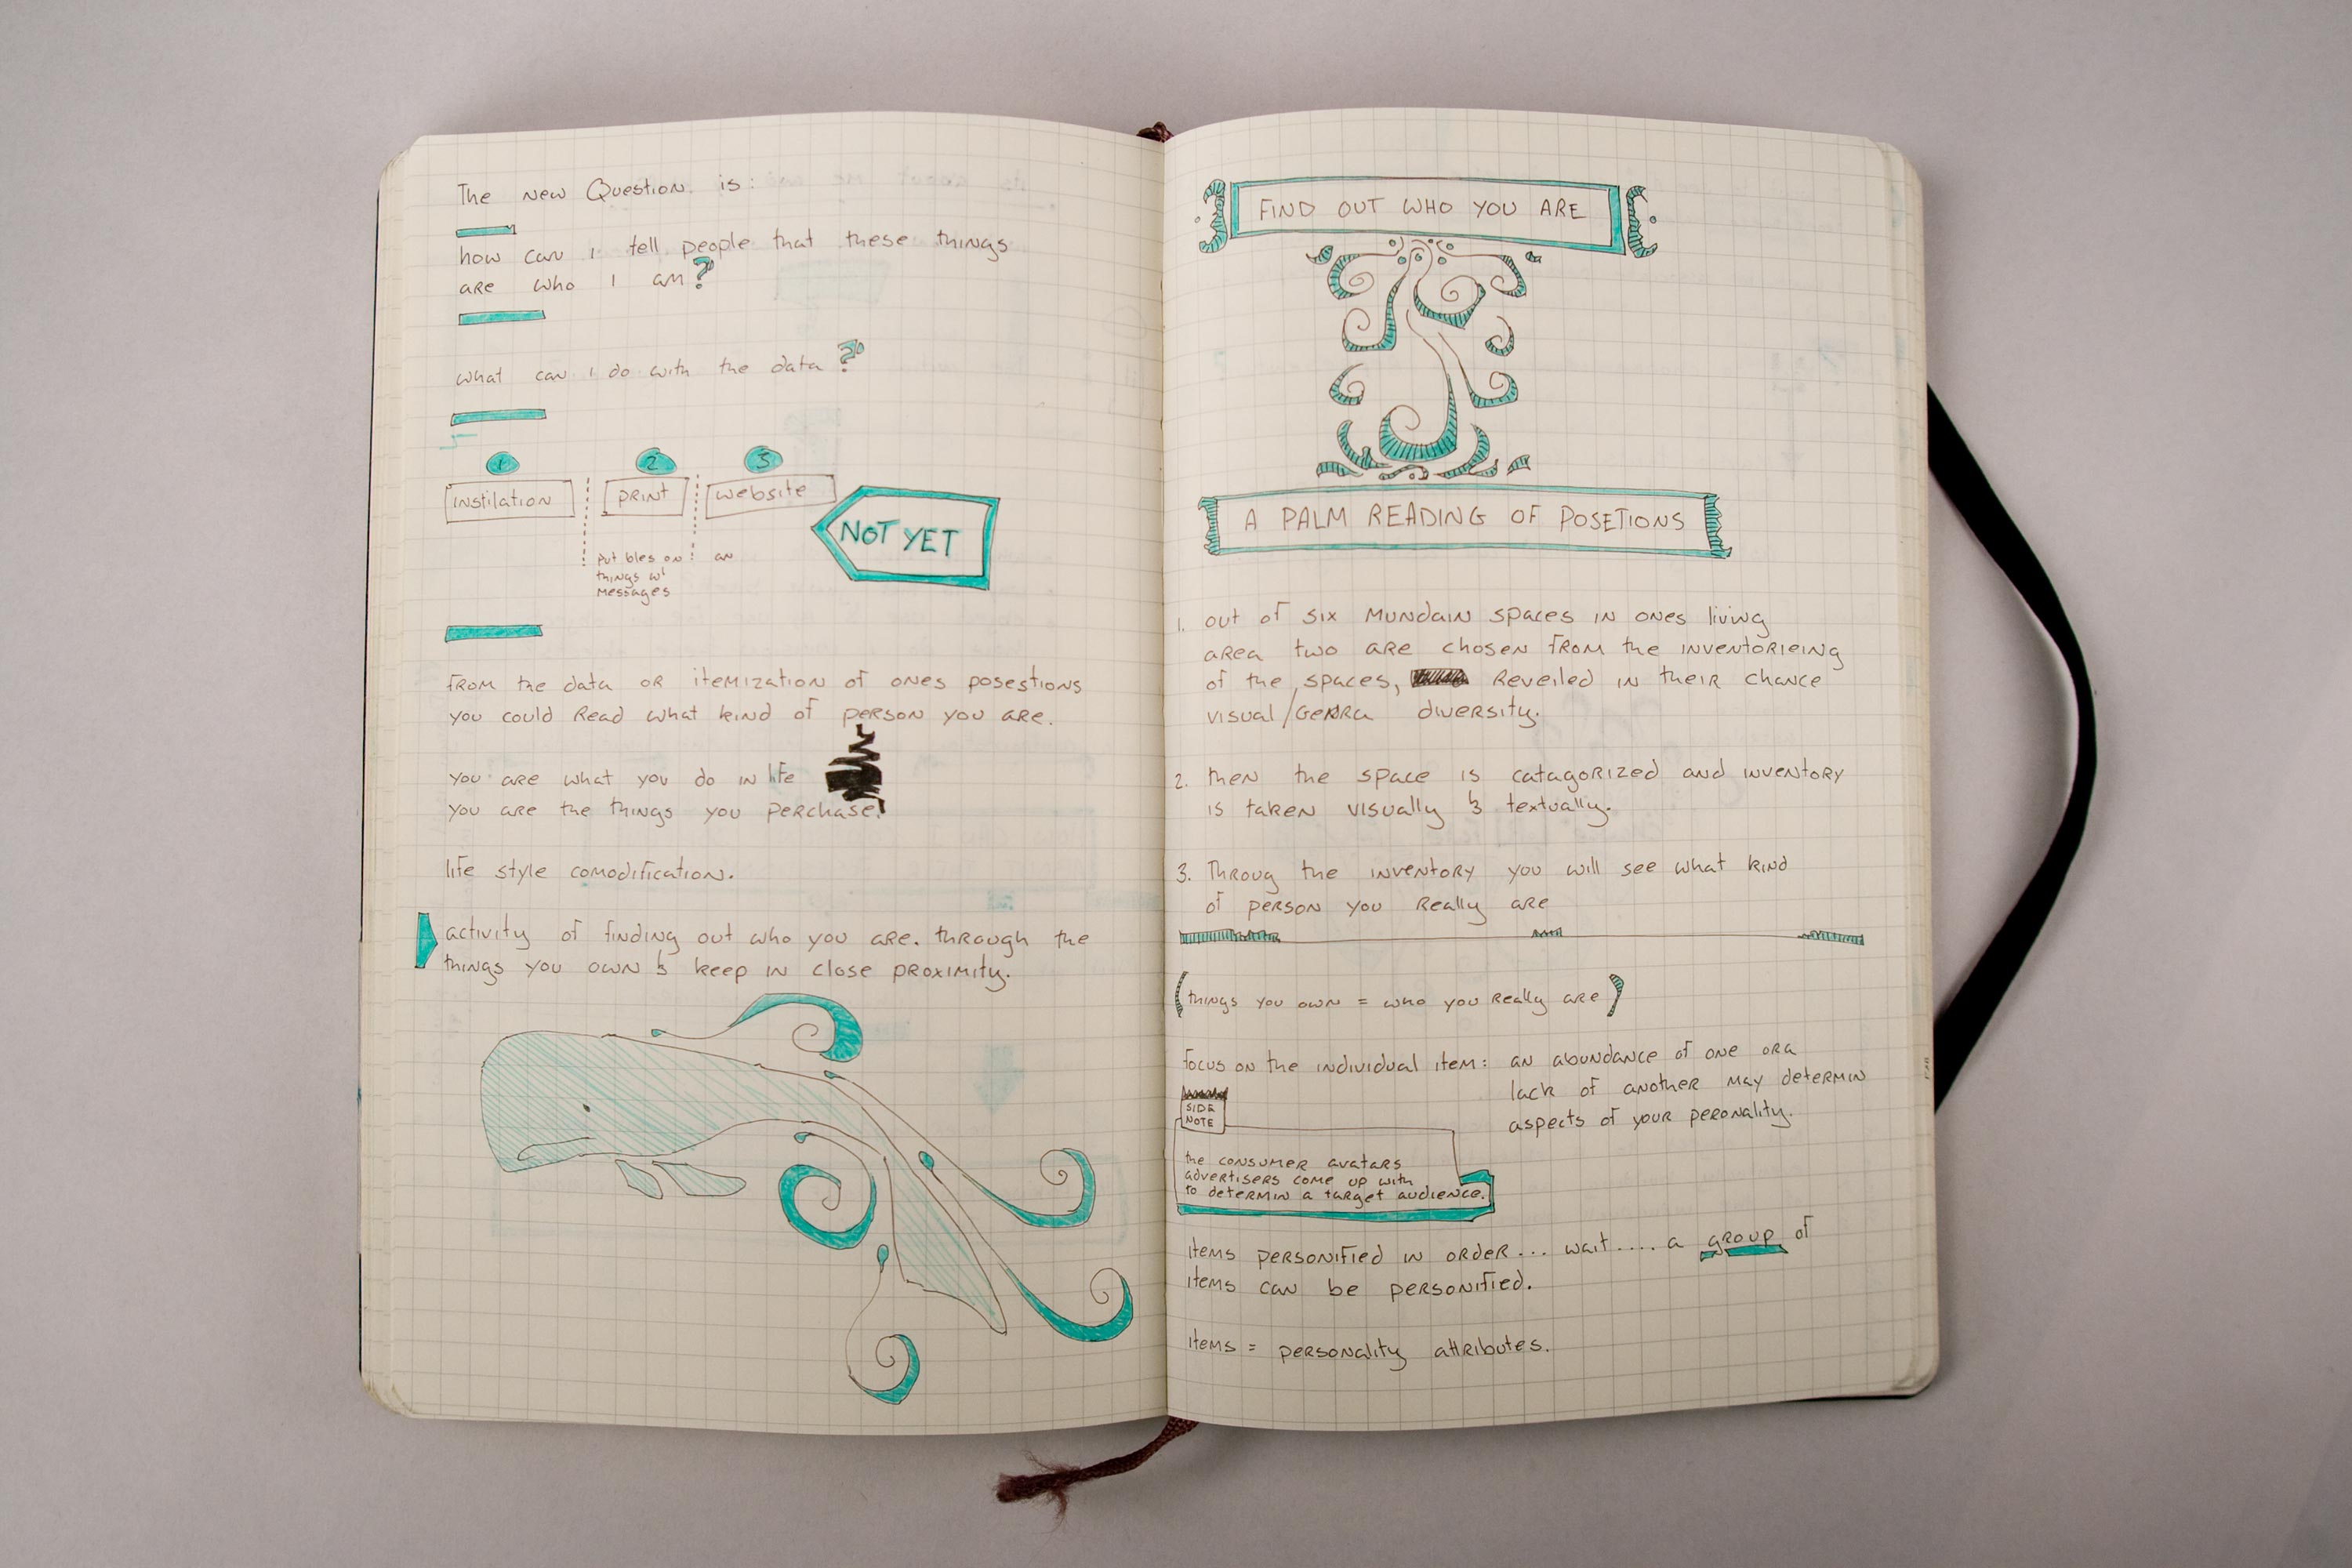 The new Question is:
how can i tell people that these things
are who i am?
what can i do with the data?
1 2 3
instilation print website
NOT YET
put bles on an
things w/
messages
from the data or itemization of ones posestions
you could read what kind of person you are.
you are what you do in life
you are the things you perchase.
life style comodification.
activity of finding out who you are. through the
things you own & keep in close proximity.
FIND OUT WHO YOU ARE
A PALM READING OF POSETIONS
1. out of six mundain spaces in ones living
area two are chosen from the inventorieing
of the spaces, reveiled in their chance
visual/genra diversity.
2. then the space is catagorized and inventory
is taken visually & textually.
3. Throug the inventory you will see what kind
of person you really are
(things you own = who you really are)
focus on the individual item: an abundance of one ora
lack of another may determin
aspects of your peronality.
SIDE
NOTE
the consumer avatars
advertisers come up with
to determin a target audience.
items personified in order... wait.... a group of
items can be personified.
items = personality attributes.